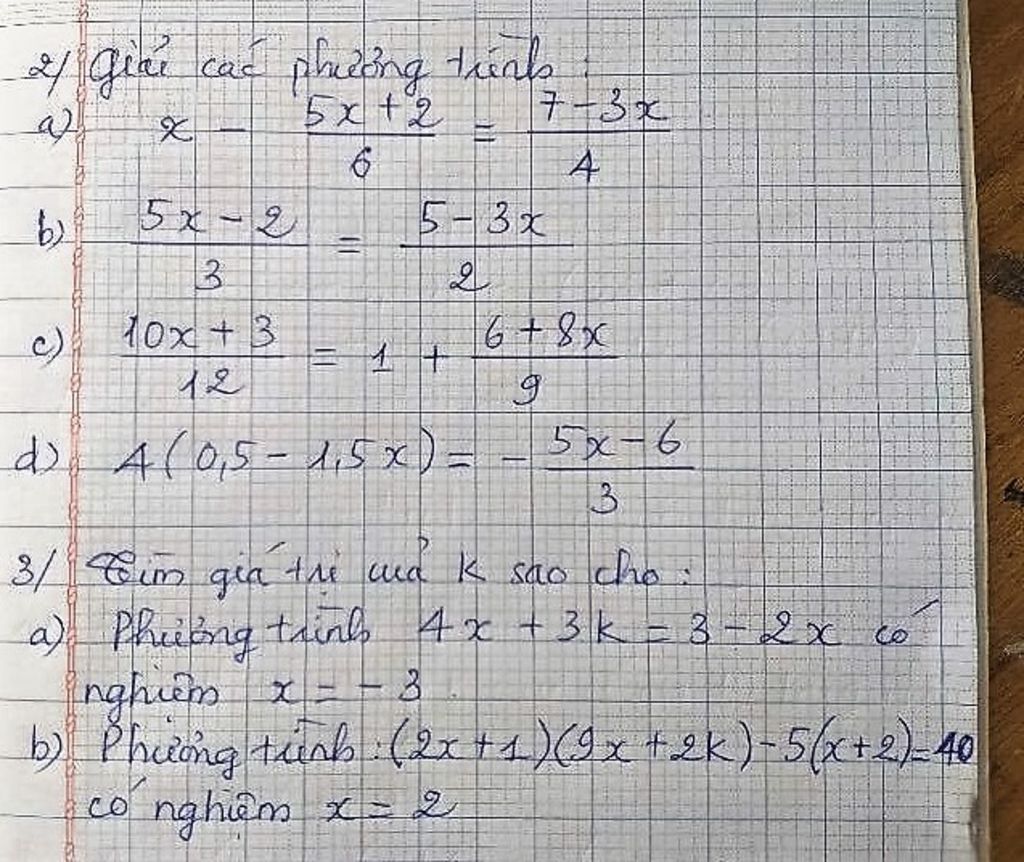 2/ Giải các phương trình :
a) x - (5x + 2)/6 = (7 - 3x)/4
b) (5x - 2)/3 = (5 - 3x)/2
c) (10x + 3)/12 = 1 + (6 + 8x)/9
d) 4(0,5 - 1,5x) = - (5x - 6)/3
3/ Tìm giá trị của k sao cho :
a) Phương trình 4x + 3k = 3 - 2x có
nghiệm x = - 3
b) Phương trình : (2x + 1)(9x + 2k) - 5(x + 2) = 40
có nghiệm x = 2